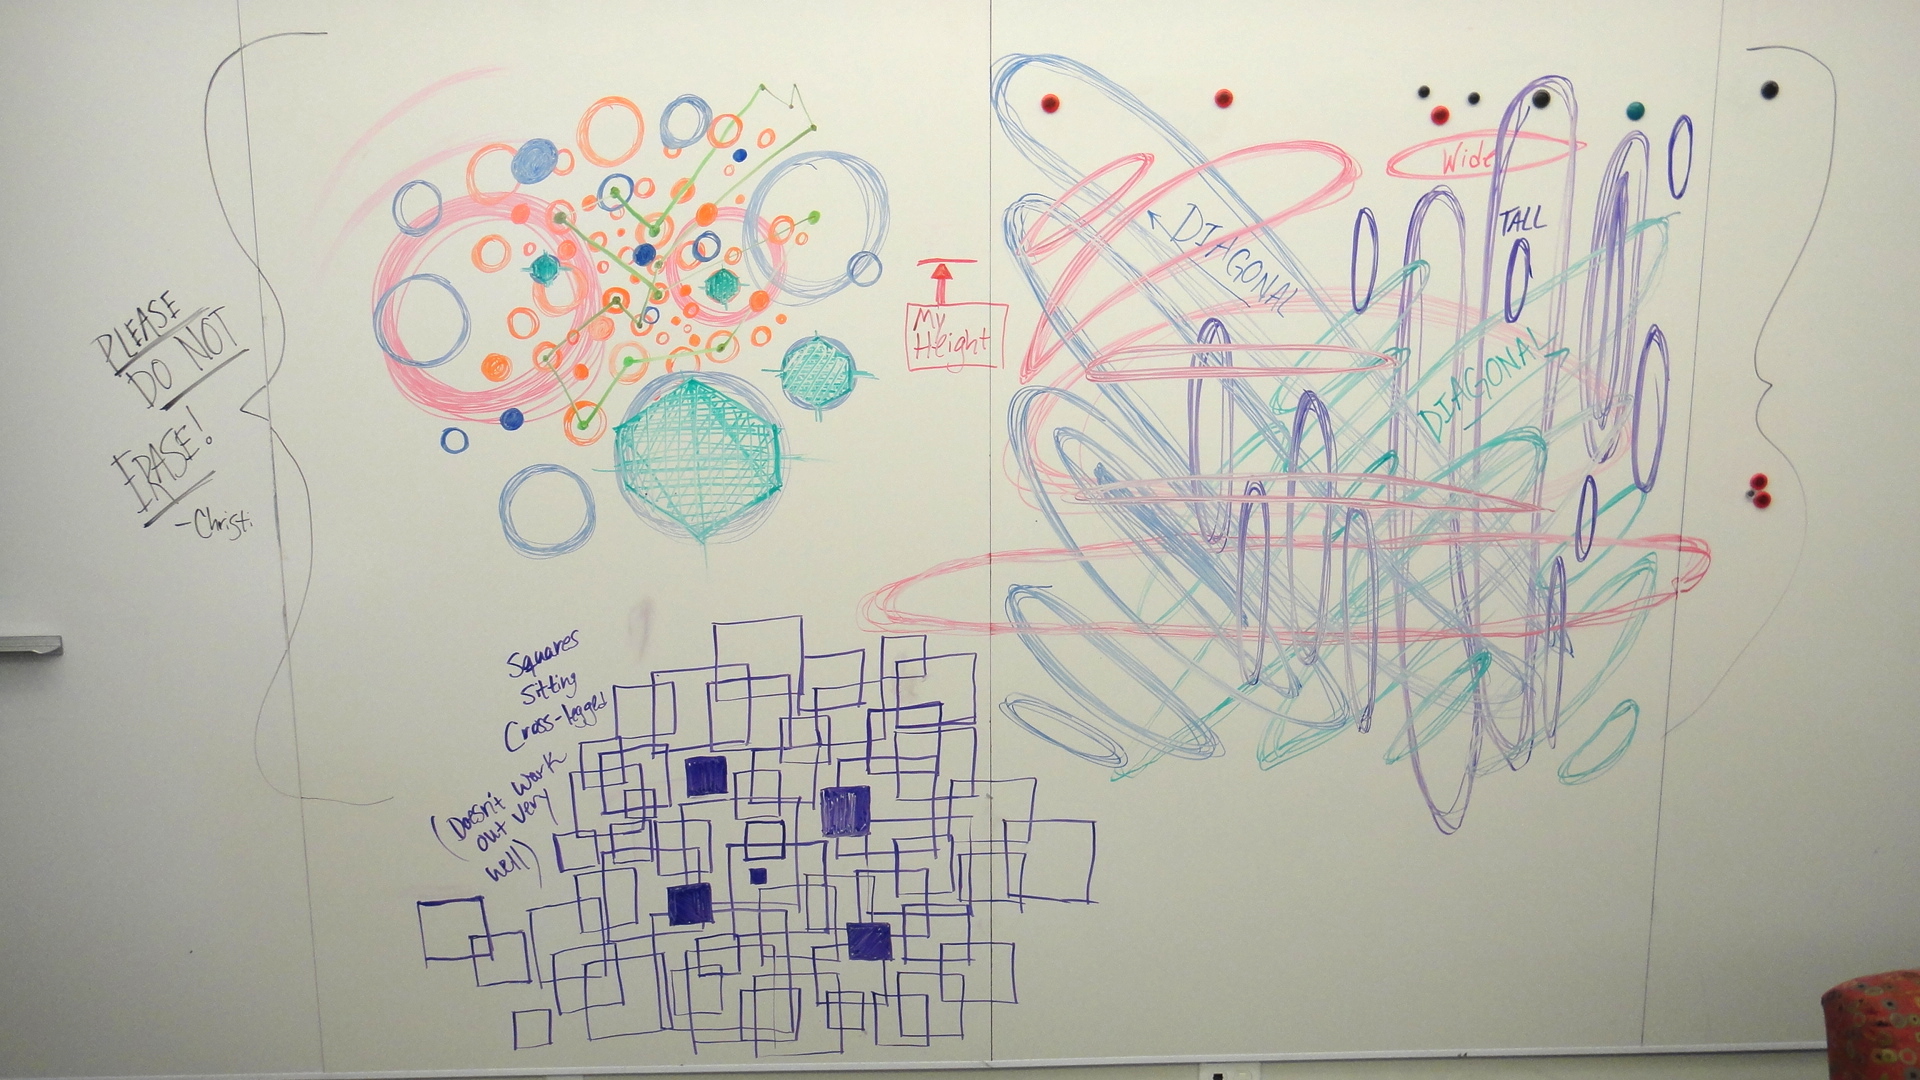 PLEASE
DO NOT
ERASE!
-Christi
My
Height
DIAGONAL
Wide
TALL
DIAGONAL
Squares
Sitting
Cross-legged
(Doesn't work
out very
well)